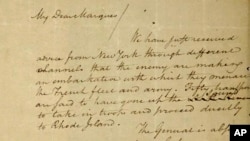 My Dear Marquis/
We have just received
advice from New York through different
channels that the enemy are making
an embarkation with which they menace
the French fleet and army. Fifty transports
are said to have gone up the Sound
to take in troops and proceed directly
to Rhode Island.
The General is abs
AP